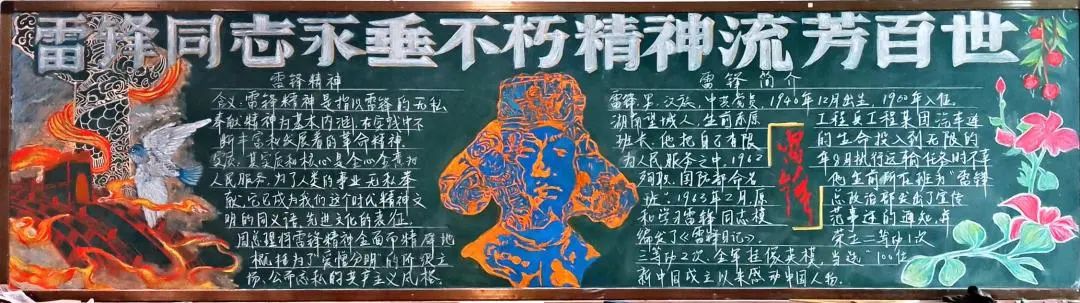 雷锋同志永垂不朽精神流芳百世
雷锋精神
含义:雷锋精神是指以雷锋的无私
奉献精神为基本内涵,在实践中不
断丰富和发展着的革命精神,
其实质和核心是全心全意为
人民服务,为了人类的事业无私奉
献,它已成为我们这个时代精神文
明的同义语、先进文化的表征。
周总理将雷锋精神全面而精辟地
概括为了"爱憎分明"的阶级立
场、公而忘私的共产主义风格。
雷锋简介
雷锋,男,汉族,中共党员,1940年12月出生,1960年入伍。
湖南望城人,生前系原 工程兵工程某团汽车连
班长,他把自己有限 的生命投入到无限的
为人民服务之中,1962 年8月执行运输任务时不幸
殉职,国防部命名 他生前所在班为"雷锋
班";1963年2月,原 总政治部发出了宣传
和学习雷锋同志模 范事迹的通知,并
编发了《雷锋日记》。 荣立二等功1次
三等功2次,全军挂像英模,当选"100位
新中国成立以来感动中国人物。
雷锋